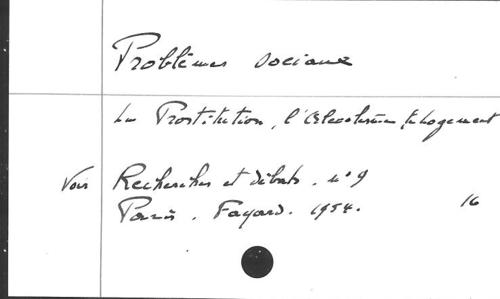 Problèmes sociaux
La Prostitution, l'Alcoolisme, le Logement
Voir Recherches et débats. n° 9
Paris. Fayard. 1954. 16